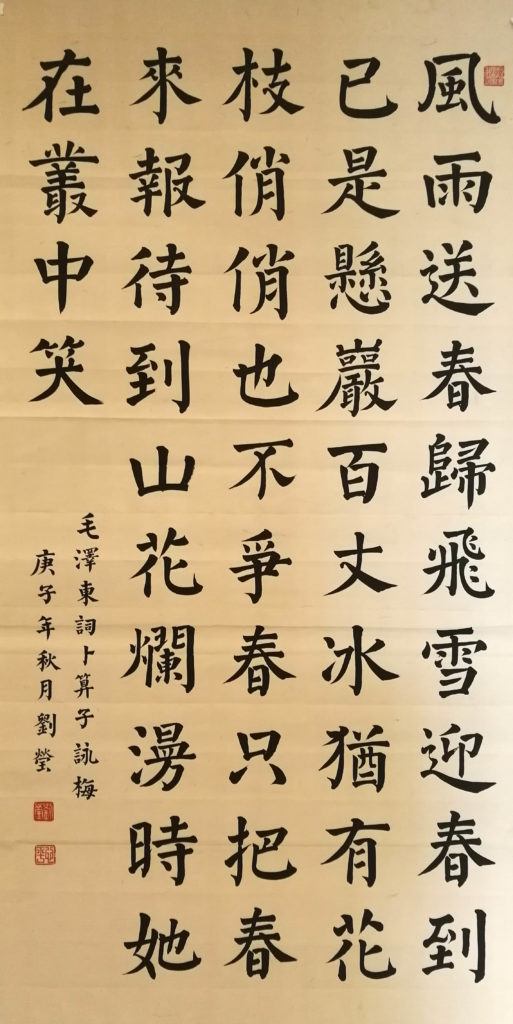 風雨送春歸飛雪迎春到
已是懸巖百丈冰猶有花
枝俏俏也不爭春只把春
來報待到山花爛漫時她
在叢中笑
毛澤東詞卜算子詠梅
庚子年秋月劉瑩